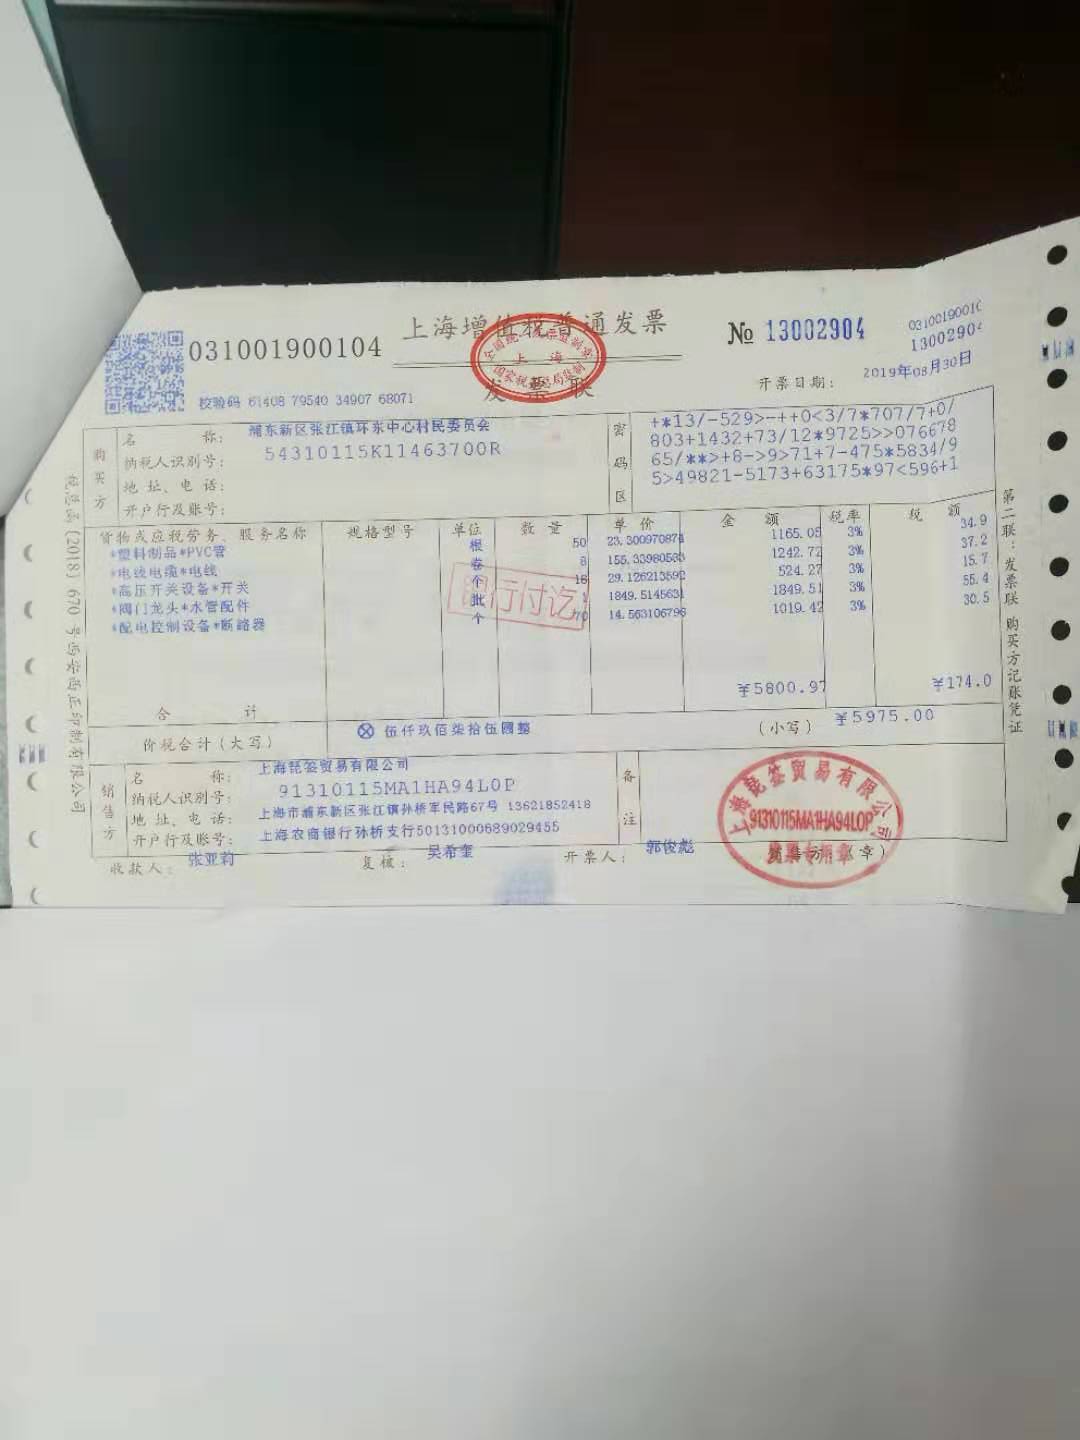 上海增值税普通发票
发票联
031001900104
№ 13002904
031001900
1300290
校验码 61408 79540 34907 68071
开票日期: 2019年08月30日
购买方
名 称: 浦东新区张江镇环东中心村民委员会
纳税人识别号: 54310115K11463700R
地址、电话:
开户行及账号:
密码区
+*13/-529>-++0<3/7*707/7+0/
803+1432+73/12*9725>>076678
65/**>+8->9>71+7-475*5834/9
5>49821-5173+63175*97<596+1
货物或应税劳务、服务名称 规格型号 单位 数量 单价 金额 税率 税额
*塑料制品*PVC管 根 50 23.300970874 1165.05 3% 34.9
*电线电缆*电线 卷 8 155.33980583 1242.72 3% 37.2
*高压开关设备*开关 个 18 29.126213592 524.27 3% 15.7
*阀门龙头*水管配件 批 1 1849.5145631 1849.51 3% 55.4
*配电控制设备*断路器 个 70 14.563106796 1019.42 3% 30.5
行付讫
合计 ¥5800.97 ¥174.0
价税合计(大写) ⊗ 伍仟玖佰柒拾伍圆整 (小写) ¥5975.00
销售方
名 称: 上海琵签贸易有限公司
纳税人识别号: 91310115MA1HA94L0P
地址、电话: 上海市浦东新区张江镇孙桥军民路67号 13621852418
开户行及账号: 上海农商银行孙桥支行50131000689029455
备注
收款人: 张亚莉 复核: 吴希奎 开票人: 郭俊彪
上海琵签贸易有限公司
91310115MA1HA94L0P
发票专用章
第二联:发票联 购买方记账凭证